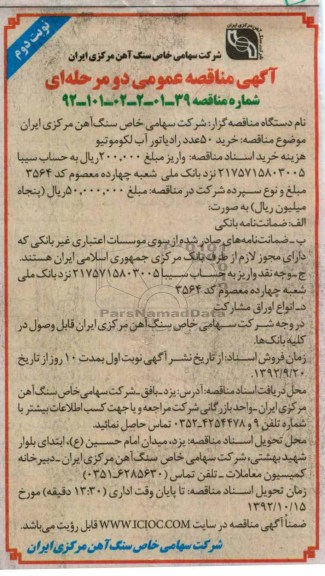 نوبت دوم
شرکت سهامی خاص سنگ آهن مرکزی ایران
آگهی مناقصه عمومی دو مرحله‌ای
شماره مناقصه ۳۹-۰۱-۲-۰۲-۱۰۱-۹۲
نام دستگاه مناقصه گزار: شرکت سهامی خاص سنگ‌آهن مرکزی ایران
موضوع مناقصه: خرید ۵۰عدد رادیاتور آب لکوموتیو
هزینه خرید اسناد مناقصه: واریز مبلغ ۲۰۰,۰۰۰ریال به حساب سیبا
۲۱۷۵۷۱۵۸۰۳۰۰۵ نزد بانک ملی شعبه چهارده معصوم کد ۳۵۶۴
مبلغ و نوع سپرده شرکت در مناقصه: مبلغ ۵۰,۰۰۰,۰۰۰ریال (پنجاه
میلیون ریال) به صورت:
الف: ضمانت‌نامه بانکی
ب-ضمانت‌نامه‌های صادر شده از سوی موسسات اعتباری غیر بانکی که
دارای مجوز لازم از طرف بانک مرکزی جمهوری اسلامی ایران هستند.
ج-وجه نقد واریز به حساب سیبا ۲۱۷۵۷۱۵۸۰۳۰۰۵ نزد بانک ملی
شعبه چهارده معصوم کد ۳۵۶۴
د-انواع اوراق مشارکت
ParsNamadData
در وجه شرکت سهامی خاص سنگ‌آهن مرکزی ایران قابل وصول در
کلیه بانک‌ها.
زمان فروش اسناد: از تاریخ نشر آگهی نوبت اول بمدت ۱۰ روز از تاریخ
۱۳۹۲/۹/۲۰
محل دریافت اسناد مناقصه: آدرس: یزد-بافق-شرکت سهامی خاص سنگ‌آهن
مرکزی ایران-واحد بازرگانی شرکت مراجعه و یا جهت کسب اطلاعات بیشتر با
شماره تلفن ۹ و ۴۲۵۴۴۷۸-۰۳۵۲ تماس حاصل نمائید.
محل تحویل اسناد مناقصه: یزد، میدان امام حسین (ع)، ابتدای بلوار
شهید بهشتی، شرکت سهامی خاص سنگ آهن مرکزی ایران-دبیرخانه
کمیسیون معاملات-تلفن تماس (۶۲۸۵۶۳۰-۰۳۵۱)
زمان تحویل اسناد مناقصه: تا پایان وقت اداری (۱۳:۳۰ دقیقه) مورخ
۱۳۹۲/۱۰/۱۵
ضمناً آگهی مناقصه در سایت WWW.ICIOC.COM قابل رؤیت می‌باشد.
شرکت سهامی خاص سنگ آهن مرکزی ایران